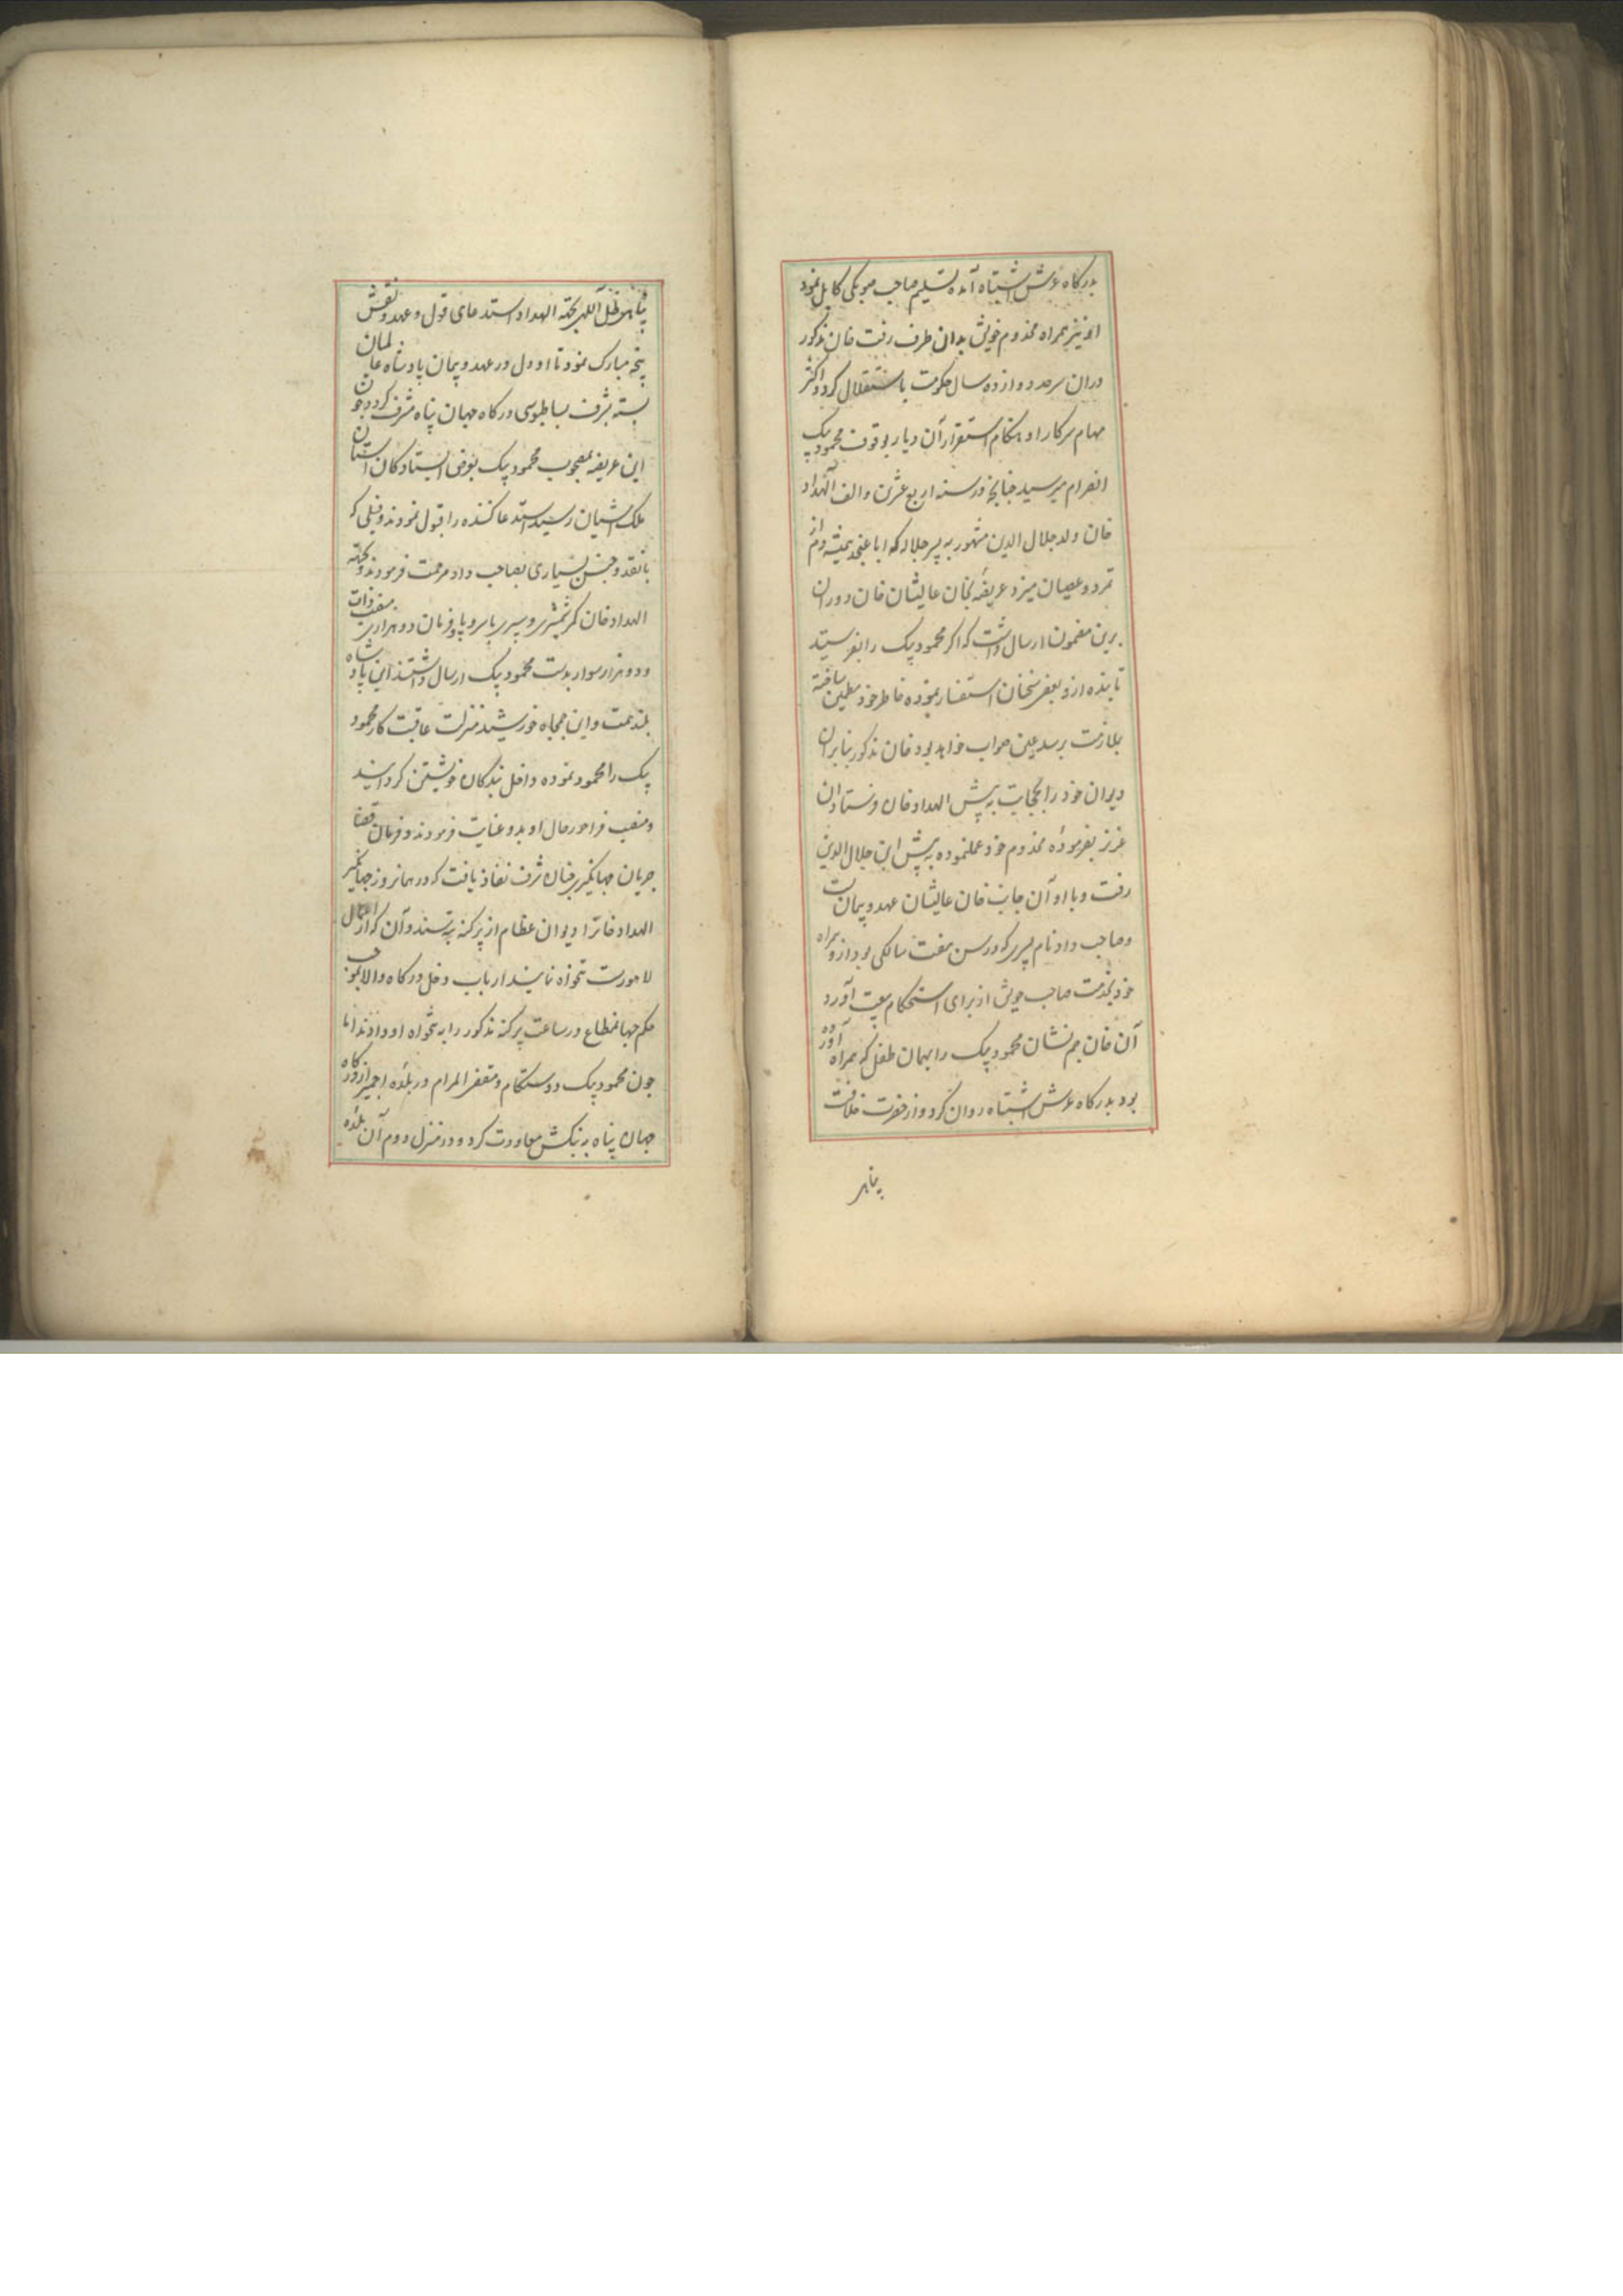 بدرگاه عرش اشتباه آمده تسلیم صاحب صوبکی کابل نمود
او نیز همراه مخدوم خویش بدان طرف رفت خان مذکور
دران سرحد دوازده سال حکومت باستقلال کرد و اکثر
مهام سرکار او هنگام استقرار آن دیار بوقوف محمود بیک
انصرام میرسید چنانچه در سنه اربع عشرین و الف الهداد
خان ولد جلال الدین مشهور به پسر جلاله که ابا عن جد همیشه دم از
تمرد و عصیان میزد عریضهٔ بخان عالیشان خان دوران
برین مضمون ارسال داشت که اگر محمود بیک را بفرستید
تا بنده ازو بعضی سخنان استفسار نموده خاطر خود مطمین ساخته
بملازمت برسد عین صواب خواهد بود خان مذکور بنا بران
دیوان خود را بجهت به پیش الهداد خان فرستاد ان
عزیز بفرمودهٔ مخدوم خود عملنموده به پیش ابن جلال الدین
رفت و با او آن جانب خان عالیشان عهد و پیمان بست
و صاحب داد نام پسری که در سن هفت سالکی بود ازو همراه
خود بخدمت صاحب خویش از برای استحکام بیعت آورد
آن خان جم نشان محمود بیک را بهمان طفل که همراه آورده
بود بدرگاه عرش اشتباه روان کرد و از حضرت خلافت
پناهی
پناهی ظل آللهی بجهته الهداد استدعای قول و عهد و نقش
پنجهٔ مبارک نمود تا او دل در عهد و پیمان پادشاه عالمیان
بسته بشرف بساطبوسی درگاه جهان پناه مشرف کرده چون
این عریضه بمصحوب محمود بیک بعرض ایستادگان آستان
ملک آشیان رسید استدعا کننده را قبول نمودند و فیلی که
با نقد و جنس بسیاری بصاحب داد مرحمت فرمودند و بجهته
الهداد خان کمر شمشیری و سپری با سروپا و فرمان دو هزاری منصب ذات
و دو هزار سوار بدست محمود بیک ارسال داشتند این پادشاه
بلند همت و این جمجاه خورشید منزلت عاقبت کار محمود
بیک را محمود نموده داخل بندگان خویشتن کردانید
و منصب فراخور حال او بدو عنایت فرمودند و فرمان قضا
جریان جهانگیری چنان شرف نفاذ یافت که در همانروز جهانگیر
الهداد خانرا دیوان عظام از پرگنه بتسندو آن که از اعمال
لاهورست تنخواه نمایند ارباب دخل درگاه والا بموجب
حکم جهانمطاع در ساعت پرگنه مذکور را به تنخواه او دادند اما
چون محمود بیک دوستکام و مقضی المرام در بلدهٔ اجمیر از درگاه
جهان پناه به بنکش معاودت کرد و در منزل دوم آن بلده